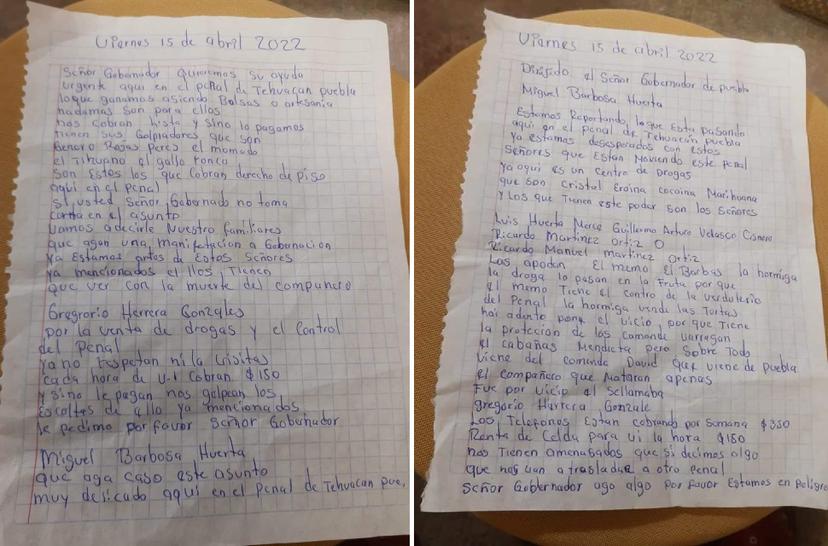 Viernes 15 de abril 2022
Señor Gobernador Queremos su ayuda
urgente aqui en el penal de Tehuacan puebla
loque ganamos asiendo Bolsas o artesania
nadamas son para ellos
nos cobran lista y sino lo pagamos
tienen sus Golpiadores que son
Genaro Rojas Peres el momado
el Tihuano el gallo Ronco
son Estos los que Cobran derecho de piso
aqui en el penal
si usted Señor Gobernado no toma
carta en el asunto
vamos adecirle Nuestro familiares
que agan una manifetacion a Gobernacion
ya Estamos artos de Estos Señores
ya mencionados ellos Tienen
que ver con la muerte del compañero
Gregorio Herrera Gonzales
por la venta de drogas y el Control
del penal
ya no respetan ni la visitas
cada hora de v.i Cobran $150
y sino le pagan nos golpean los
Escoltas de ello ya mencionados
le pedimo por favor Señor Gobernador
Miguel Barbosa Huerta
que aga caso este asunto
muy delicado aqui en el Penal de Tehuacan pue,
Viernes 15 de abril 2022
Dirigido al Señor Gobernador de puebla
Miguel Barbosa Huerta
Estamos Reportando loque Esta pasando
aqui en el penal de Tehuacan puebla
ya estamos desesperados con estos
señores que Estan Moviendo este penal
ya aqui es un centro de drogas
que son Cristal Eroina cocaina Marihuana
y Los que Tienen este poder son los Señores
Luis Huerta Merce Guillermo Arturo Velasco Cisnero
Ricardo Martinez Ortiz O
Ricardo Manuel martinez Ortiz
Los apodan El memo El Barbas la hormiga
la droga lo pasan en la Fruta por que
el memo Tiene el contro de la verduleria
del Penal la hormiga vende las Tortas
hai adento pone el vicio, por que Tiene
la protecion de los comande Varragan
el cabañas Mendieta pero Sobre Todo
viene del comande David que viene de puebla
el Compañero que Mataran apenas
Fue por vicio el sellamaba
gregorio Harrera Gonzale
Los Telefonos Estan cobrando por Semana $350
Renta de Celda para vi la hora $150
nos Tienen amenasados que si decimos algo
que nos van a trasladar a otro penal
Señor Gobernador ago algo por favor Estamos en peligro